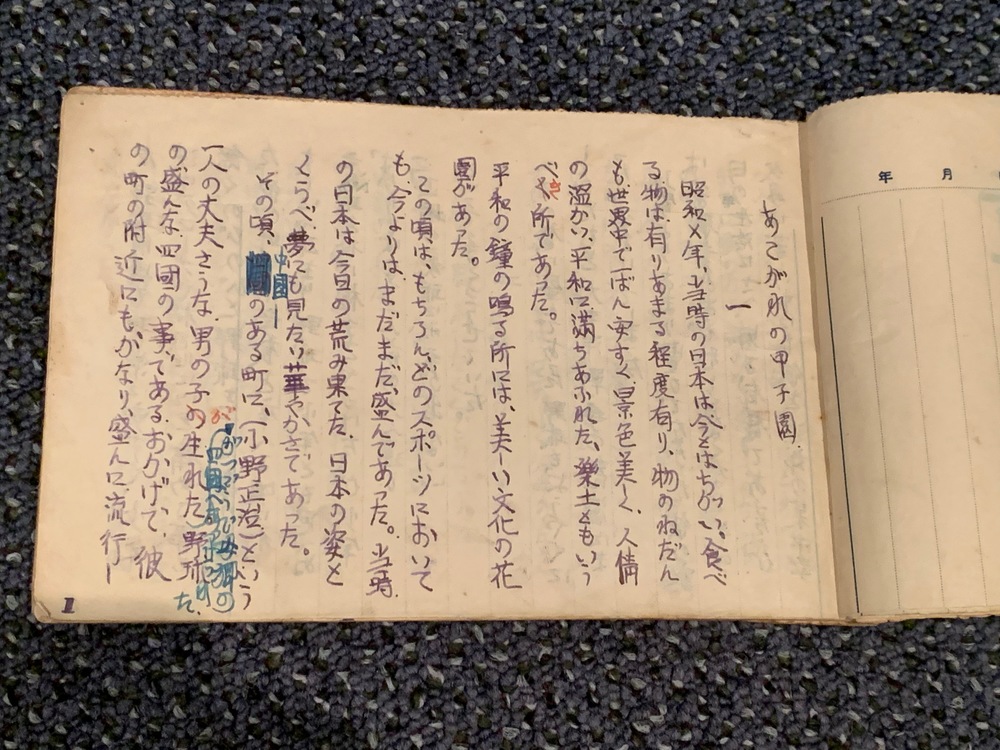 あこがれの甲子園
一
昭和×年、当時の日本は今とはちがい、食べ
る物は有りあまる程度有り、物のねだん
も世界中で一ばん安すく景色美しく、人情
の温かい、平和に満ちあふれた、樂土ともいう
べき所であった。
平和の鐘の鳴る所には、美しい文化の花
園があった。
この頃は、もちろん、どのスポーツにおいて
も、今よりは、まだまだ、盛んであった。当時
の日本は今日の荒み果てた、日本の姿と
くらべ、夢にも見たい華やかさであった。
その頃、中國のある町に、(小野正澄)という
一人の丈夫そうな、男の子が生れた
の盛んな四國の事である。おかげで、彼
の町の附近にもかなり、盛んに流行し
た。
1
年 月